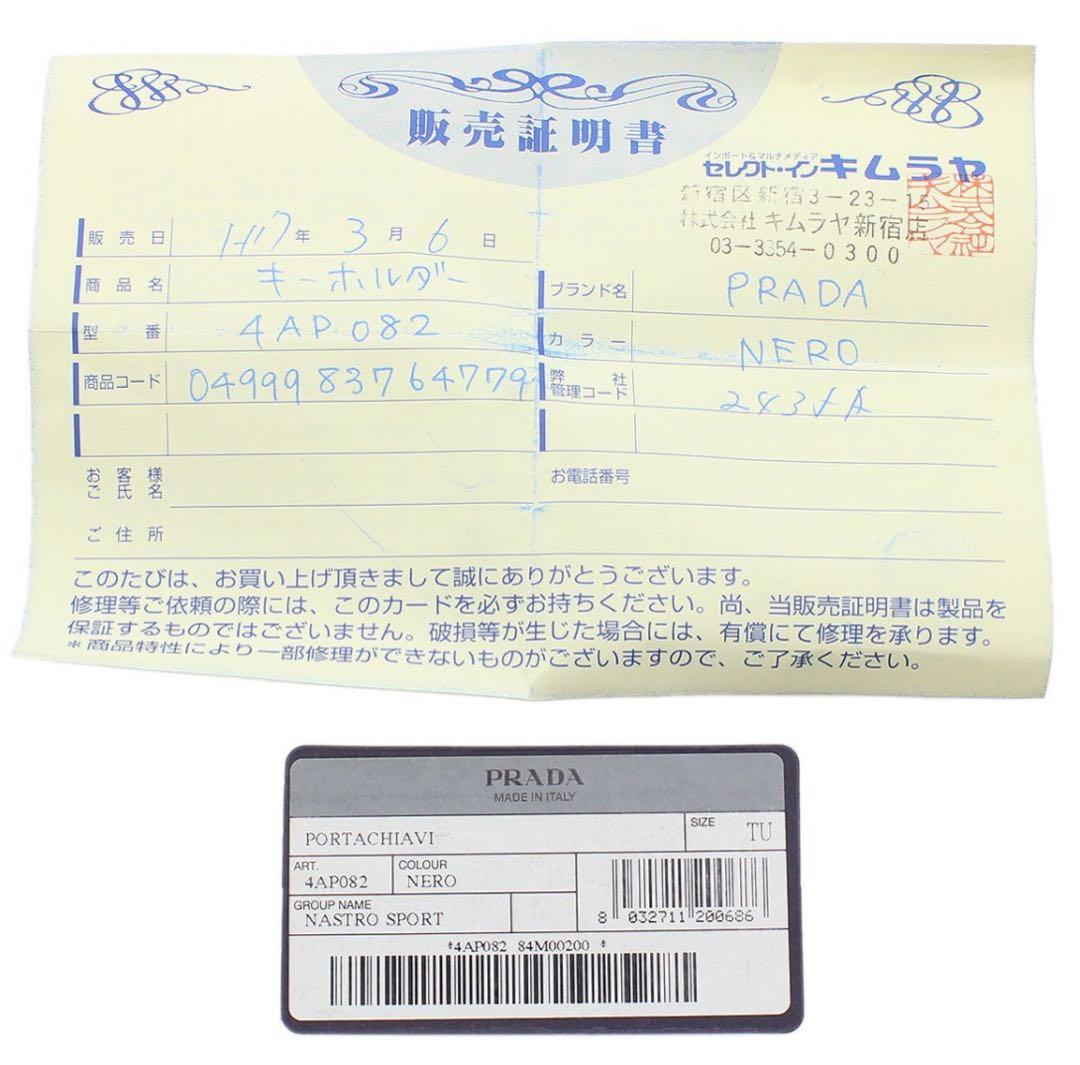 販売証明書
インポート&マルチメディア
セレクト・インキムラヤ
新宿区新宿3-23-15
株式会社 キムラヤ新宿店
03-3354-0300
販売日 H17年 3月 6日
商品名 キーホルダー ブランド名 PRADA
型番 4AP082 カラー NERO
商品コード 0499983764779 弊社管理コード
お客様ご氏名 お電話番号
ご住所
このたびは、お買い上げ頂きまして誠にありがとうございます。
修理等ご依頼の際には、このカードを必ずお持ちください。尚、当販売証明書は製品を
保証するものではございません。破損等が生じた場合には、有償にて修理を承ります。
*商品特性により一部修理ができないものがございますので、ご了承ください。
PRADA
MADE IN ITALY
PORTACHIAVI SIZE TU
ART. 4AP082 COLOUR NERO
GROUP NAME NASTRO SPORT
8 032711 200686
*4AP082 84M00200 *